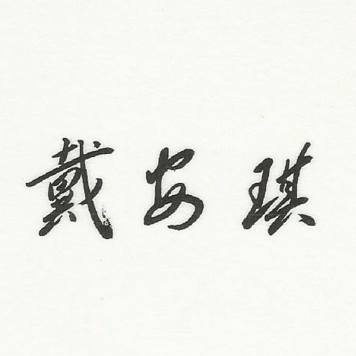 戴安琪